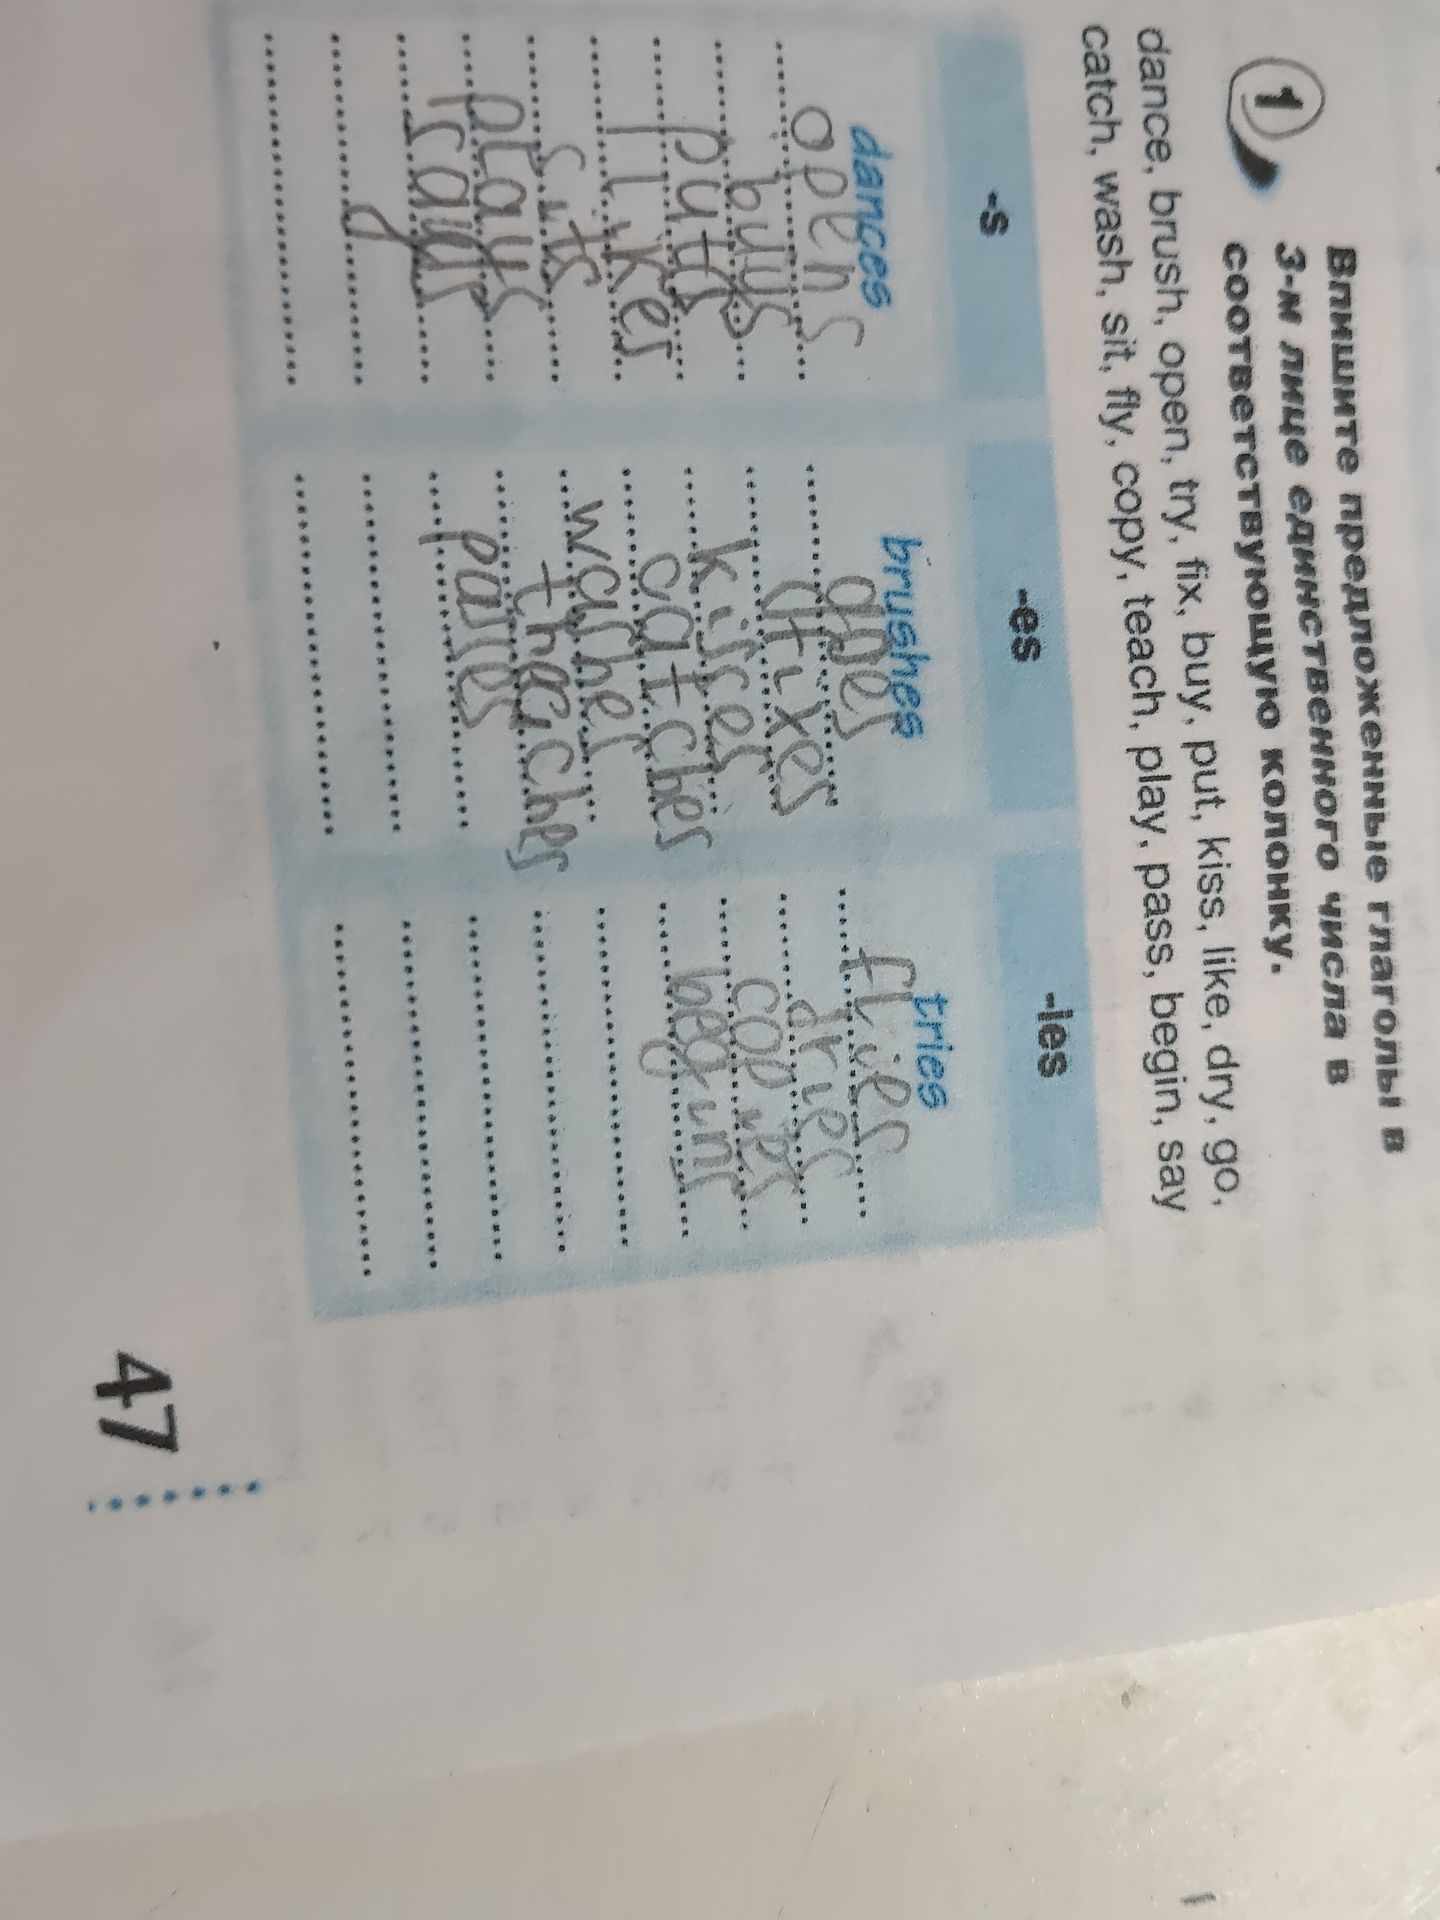 1
Впишите предложенные глаголы в
3-м лице единственного числа в
соответствующую колонку.
dance, brush, open, try, fix, buy, put, kiss, like, dry, go,
catch, wash, sit, fly, copy, teach, play, pass, begin, say
-s -es -ies
dances brushes tries
opens goes flies
buys fixes dries
puts kisses copies
likes catches begins
sits washes
plays theaches
says pases
47